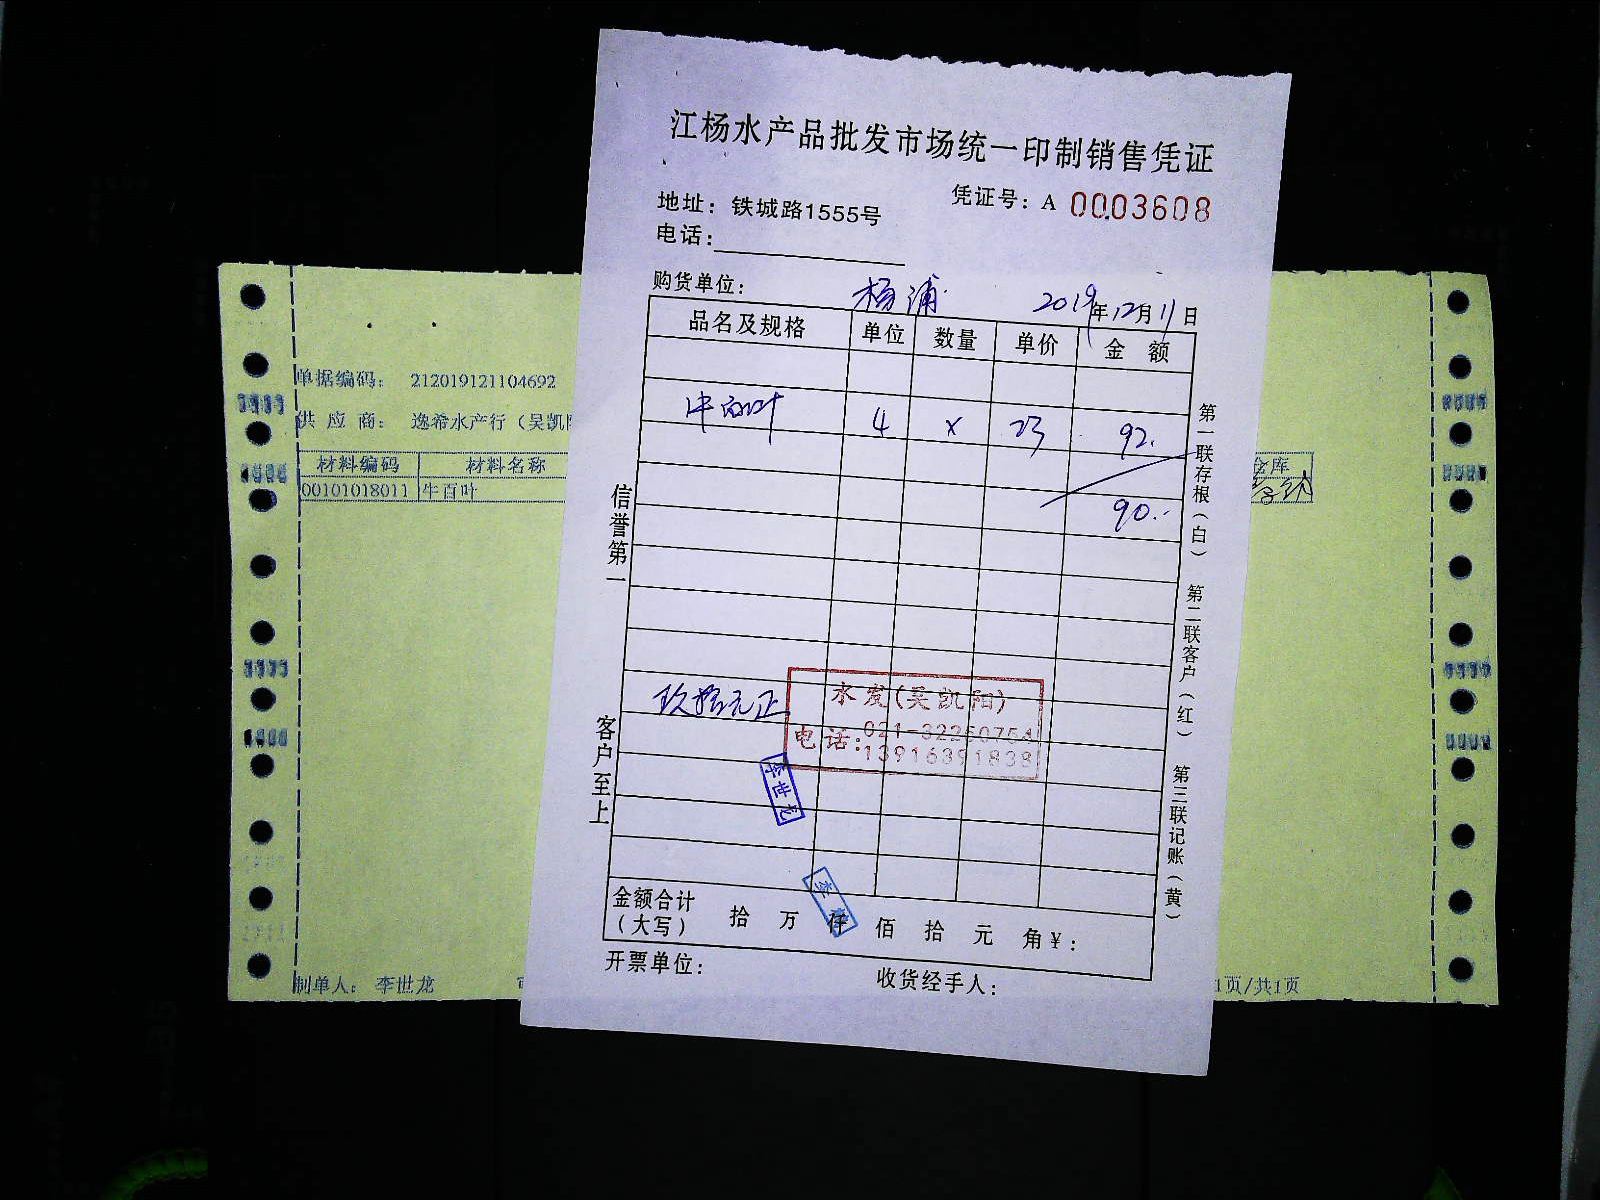 江杨水产品批发市场统一印制销售凭证
凭证号：A 0003608
地址：铁城路1555号
电话：
购货单位： 杨浦 2019年12月11日
品名及规格 单位 数量 单价 金额
牛百叶 4 x 23 92.
90.
玖拾元正
水发(吴凯阳)
电话：021-32250754
13916391838
李世龙
金额合计（大写） 拾 万 仟 佰 拾 元 角￥：
开票单位： 收货经手人：
信誉第一
客户至上
第一联存根（白） 第二联客户（红） 第三联记账（黄）
单据编码： 212019121104692
供应商： 逸希水产行（吴凯
材料编码 材料名称
00101018011 牛百叶
仓库
制单人： 李世龙
1页/共1页